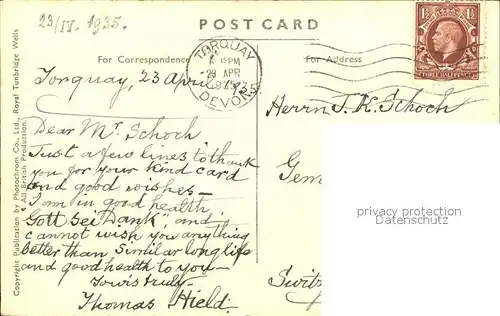 23/IV. 1935.
POST CARD
For Correspondence
For Address
TORQUAY
15PM
29 APR
DEVON
1½ 1½
THREE HALFPENCE
Torquay, 23 April 1935
Herrn J. K. Schoch
Dear Mr. Schoch
Just a few lines to thank
you for your kind card
and good wishes—
I am in good health
"Gott sei Dank", and
cannot wish you anything
better than similar long life
and good health to you—
Yours truly—
Thomas Hield.
Gem
Switz
privacy protection
Datenschutz
Copyright Publication by Photochrom Co., Ltd., Royal Tunbridge Wells
All British Production.